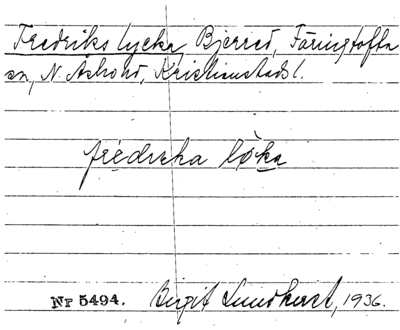 Fredriks lycka, Bjerred, Färingtofta
sn, N. Åsbo hd, Kristianstads l.
frédrcka lø̀ka
Nr 5494. Birgit Lundkvist, 1936.